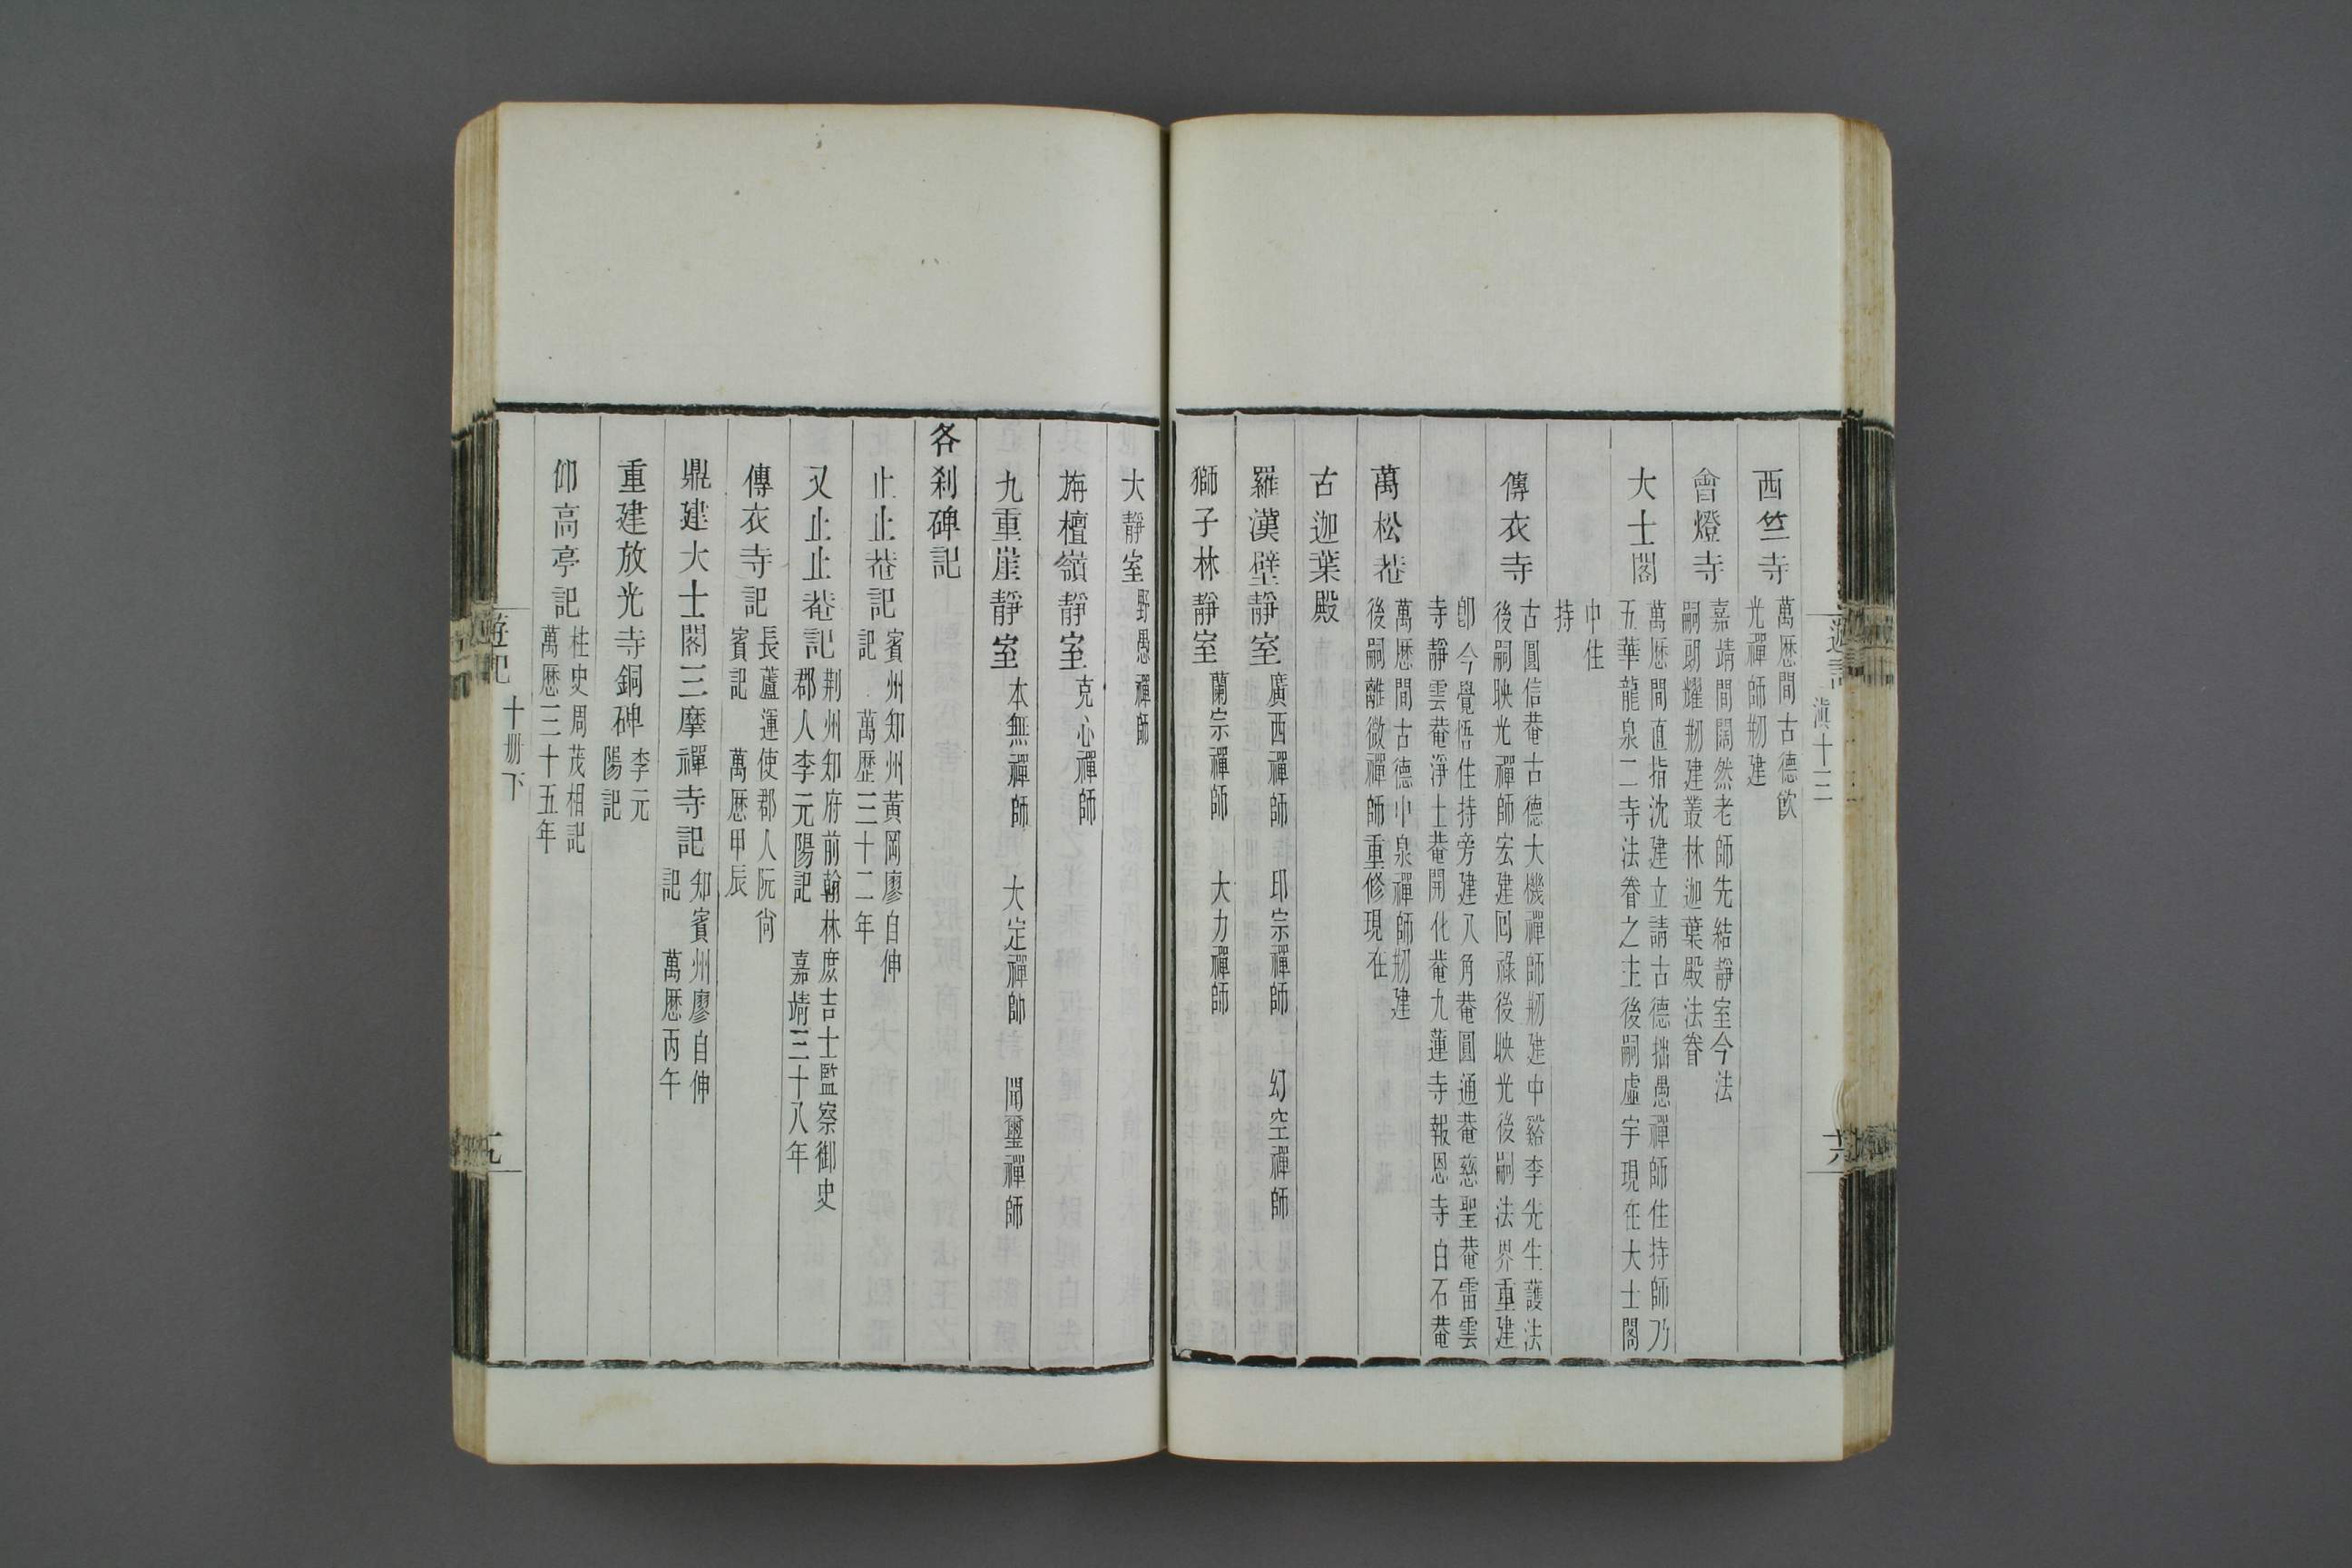 遊記 滇十三
六
西竺寺 萬歷間古德飲
光禪師剏建
會燈寺 嘉靖間闊然老師先結靜室今法
嗣朗耀剏建叢林迦葉殿法眷
大士閣 萬歷間直指沈建立請古德拙愚禪師住持師乃
五華龍泉二寺法眷之主後嗣虛宇現在大士閣
中住
持
傳衣寺 古圓信菴古德大機禪師剏建中谿李先生護法
後嗣映光禪師宏建囘祿後映光後嗣法界重建
卽今覺悟住持旁建八角菴圓通菴慈聖菴雷雲
寺靜雲菴淨土菴開化菴九蓮寺報恩寺白石菴
萬松菴 萬歷間古德中泉禪師剏建
後嗣離微禪師重修現在
古迦葉殿
羅漢壁靜室 廣西禪師 印宗禪師 幻空禪師
獅子林靜室 蘭宗禪師 大力禪師
大靜室 野愚禪師
旃檀嶺靜室 克心禪師
九重崖靜室 本無禪師 大定禪師 聞璽禪師
各刹碑記
止止菴記 賓州知州黃岡廖自伸
記 萬歷三十二年
又止止菴記 荆州知府前翰林庶吉士監察御史
郡人李元陽記 嘉靖三十八年
傳衣寺記 長蘆運使郡人阮尙
賓記 萬歷甲辰
鼎建大士閣三摩禪寺記 知賓州廖自伸
記 萬歷丙午
重建放光寺銅碑 李元
陽記
仰高亭記 柱史周茂相記
萬歷三十五年
遊記 十册下